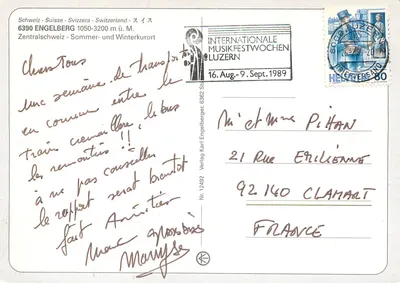 Schweiz - Suisse - Svizzera - Switzerland - スイス
6390 ENGELBERG 1050-3200 m ü. M.
Zentralschweiz - Sommer- und Winterkurort
INTERNATIONALE
MUSIKFESTWOCHEN
LUZERN
16. Aug.-9. Sept. 1989
HELVETIA 80
Chers Tous
Une semaine de transports
en commun entre le
train crémaillère, le bus
les remontées !!,
à ne pas conseiller
le rapport serait bientôt
fait Amitiés
Maryse
Verlag Karl Engelberger, 6362
Nr. 12492
M. et Mme PIHAN
21 RUE
92140 CLAMART
FRANCE